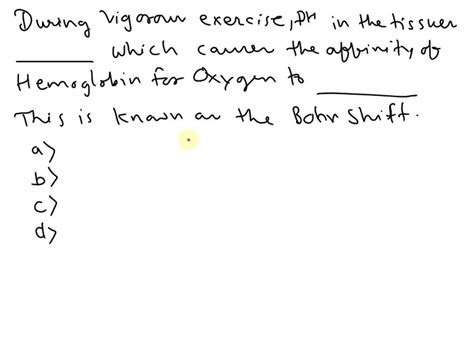 During vigorous exercise, pH in the tissues
________ which causes the affinity of
Hemoglobin for Oxygen to ________
This is known as the Bohr Shift.
a>
b>
c>
d>